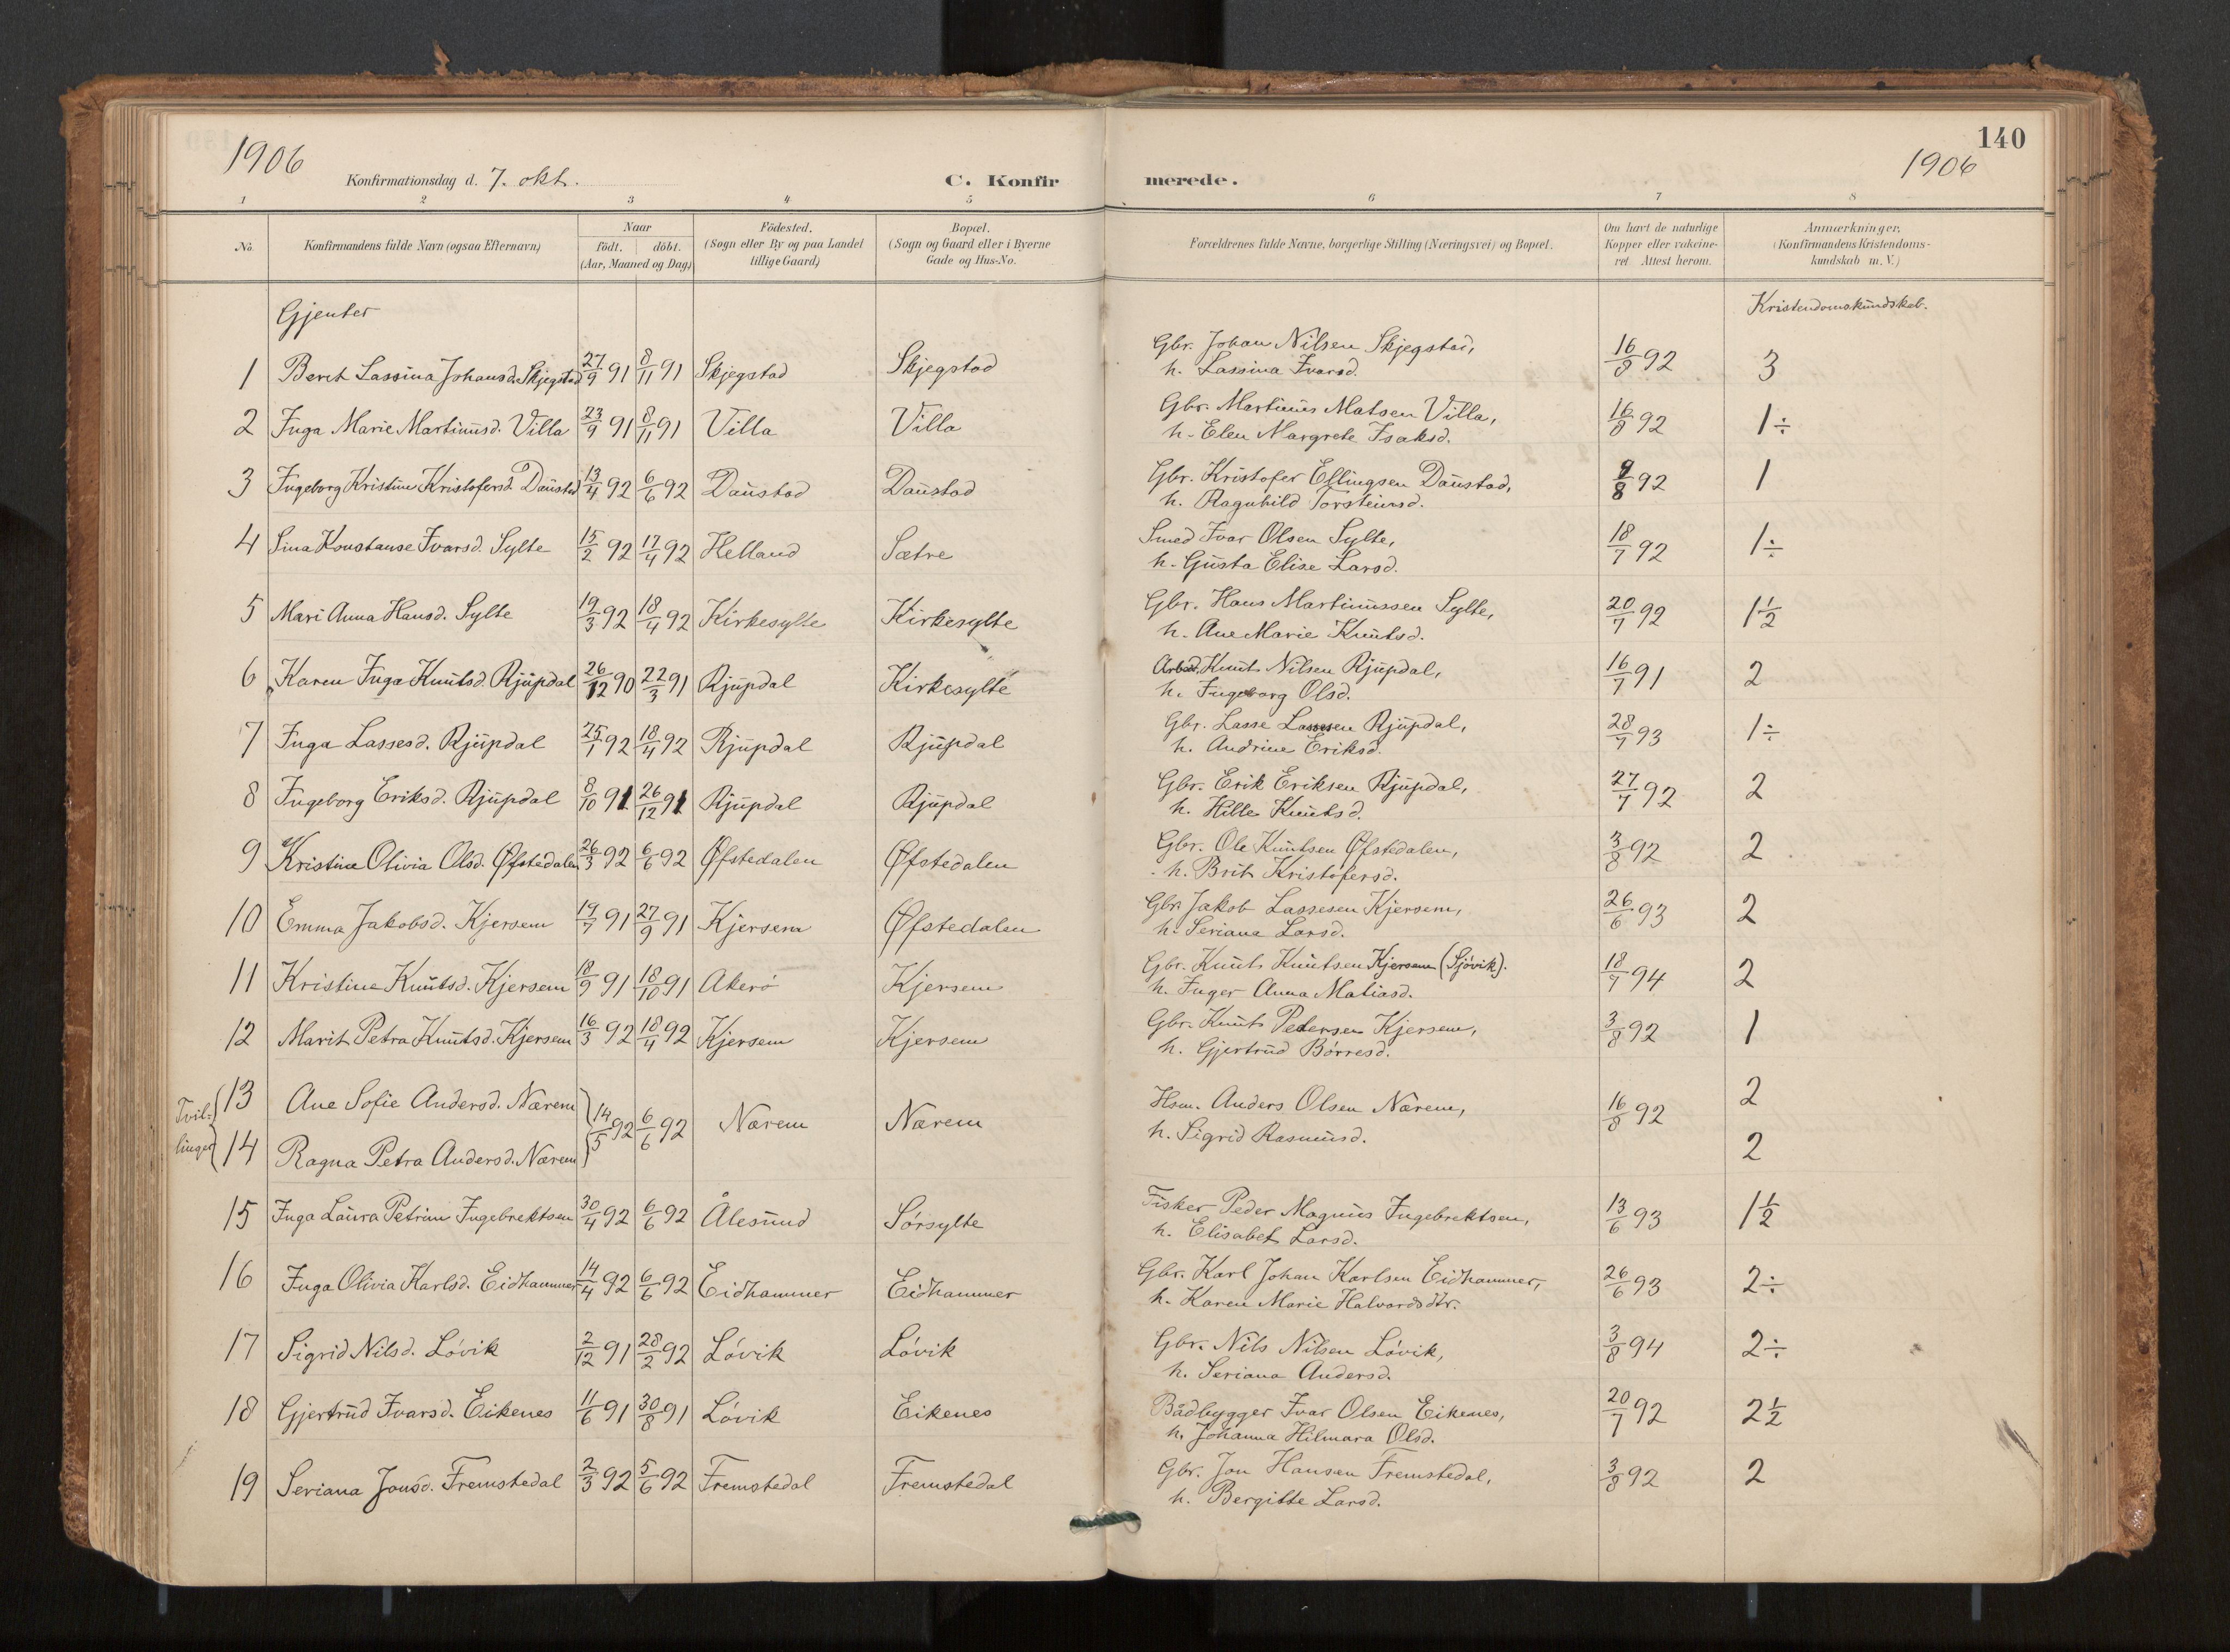 1906
Konfirmationsdag d. 7. okt.
C. Konfirmerede.
140
1906
1 2 3 4 5 6 7 8
No. Konfirmandens fulde Navn (ogsaa Efternavn) Naar födt. döbt. (Aar, Maaned og Dag) Födested. (Sogn eller By og paa Landet tillige Gaard) Bopæl. (Sogn og Gaard eller i Byerne Gade og Hus-No. Forældrenes fulde Navne, borgerlige Stilling (Næringsvei) og Bopæl. Om havt de naturlige Kopper eller vakcineret Attest herom. Anmærkninger, (Konfirmandens Kristendomskundskab m. V.)
Gjenter
Kristendomskundskab.
1 Berit Lassina Johansd. Skjegstad 27/9 91 8/11 91 Skjegstad Skjegstad Gbr. Johan Nilsen Skjegstad, 16/8 92 3
h. Lassina Ivarsd.
2 Inga Marie Martinusd. Villa 23/9 91 8/11 91 Villa Villa Gbr. Martinus Matsen Villa, 16/8 92 1÷
h. Elen Margrete Isaksd.
3 Ingeborg Kristine Kristofersd. Daustad 13/4 92 6/6 92 Daustad Daustad Gbr. Kristofer Ellingsen Daustad, 9/8 92 1
h. Ragnhild Torsteinsd.
4 Sina Konstanse Ivarsd. Sylte 15/2 92 17/4 92 Helland Sætre Smed Ivar Olsen Sylte, 18/7 92 1÷
h. Gusta Elise Larsd.
5 Mari Anna Hansd. Sylte 19/3 92 18/4 92 Kirkesylte Kirkesylte Gbr. Hans Martinussen Sylte, 20/7 92 1½
h. Ane Marie Knutsd.
6 Karen Inga Knutsd. Rjupdal 26/12 90 22/3 91 Rjupdal Kirkesylte Arbed. Knut Nilsen Rjupdal, 16/7 91 2
h. Ingeborg Olsd.
7 Inga Lassesd. Rjupdal 25/1 92 18/4 92 Rjupdal Rjupdal Gbr. Lasse Lassesen Rjupdal, 28/7 93 1÷
h. Andrine Eriksd.
8 Ingeborg Eriksd. Rjupdal 8/10 91 26/12 91 Rjupdal Rjupdal Gbr. Erik Eriksen Rjupdal, 27/7 92 2
h. Hille Knutsd.
9 Kristine Olivia Olsd. Øfstedalen 26/3 92 6/6 92 Øfstedalen Øfstedalen Gbr. Ole Knutsen Øfstedalen, 3/8 92 2
h. Brit Kristofersd.
10 Emma Jakobsd. Kjersem 19/7 91 27/9 91 Kjersem Øfstedalen Gbr. Jakob Lassesen Kjersem, 26/6 93 2
h. Seriana Larsd.
11 Kristine Knutsd. Kjersem 18/9 91 18/10 91 Akerö Kjersem Gbr. Knut Knutsen Kjersem (Sjövik). 18/7 94 2
h. Inger Anna Matiasd.
12 Marit Petra Knutsd. Kjersem 16/3 92 18/4 92 Kjersem Kjersem Gbr. Knut Pedersen Kjersem, 3/8 92 1
h. Gjertrud Börresd.
Tvillinger
13 Ane Sofie Andersd. Nærem 14/5 92 6/6 92 Nærem Nærem Hsm. Anders Olsen Nærem, 16/8 92 2
14 Ragna Petra Andersd. Nærem h. Sigrid Rasmusd. 2
15 Inga Laura Petrine Ingebrektsen 30/4 92 6/6 92 Ålesund Sörsylte Fisker Peder Magnus Ingebrektsen, 13/6 93 1½
h. Elisabet Larsd.
16 Inga Olivia Karlsd. Eidhammer 14/4 92 6/6 92 Eidhammer Eidhammer Gbr. Karl Johan Karlsen Eidhammer, 26/6 93 2÷
h. Karen Marie Halvordsdtr.
17 Sigrid Nilsd. Lövik 2/12 91 28/2 92 Lövik Lövik Gbr. Nils Nilsen Lövik, 3/8 94 2÷
h. Seriana Andersd.
18 Gjertrud Ivarsd. Eikenes 11/6 91 30/8 91 Lövik Eikenes Bådbygger Ivar Olsen Eikenes, 20/7 92 2½
h. Johanna Hilmara Olsd.
19 Seriana Jonsd. Fremstedal 2/3 92 5/6 92 Fremstedal Fremstedal Gbr. Jon Hansen Fremstedal, 3/8 92 2
h. Bergitte Larsd.